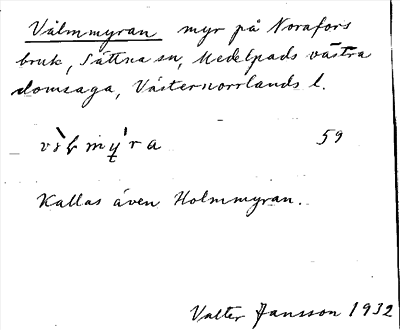 Välmmyran myr på Norafors
bruk, Sättna sn, Medelpads västra
domsaga, Västernorrlands l.
59
Kallas även Holmmyran.
Valter Jansson 1932